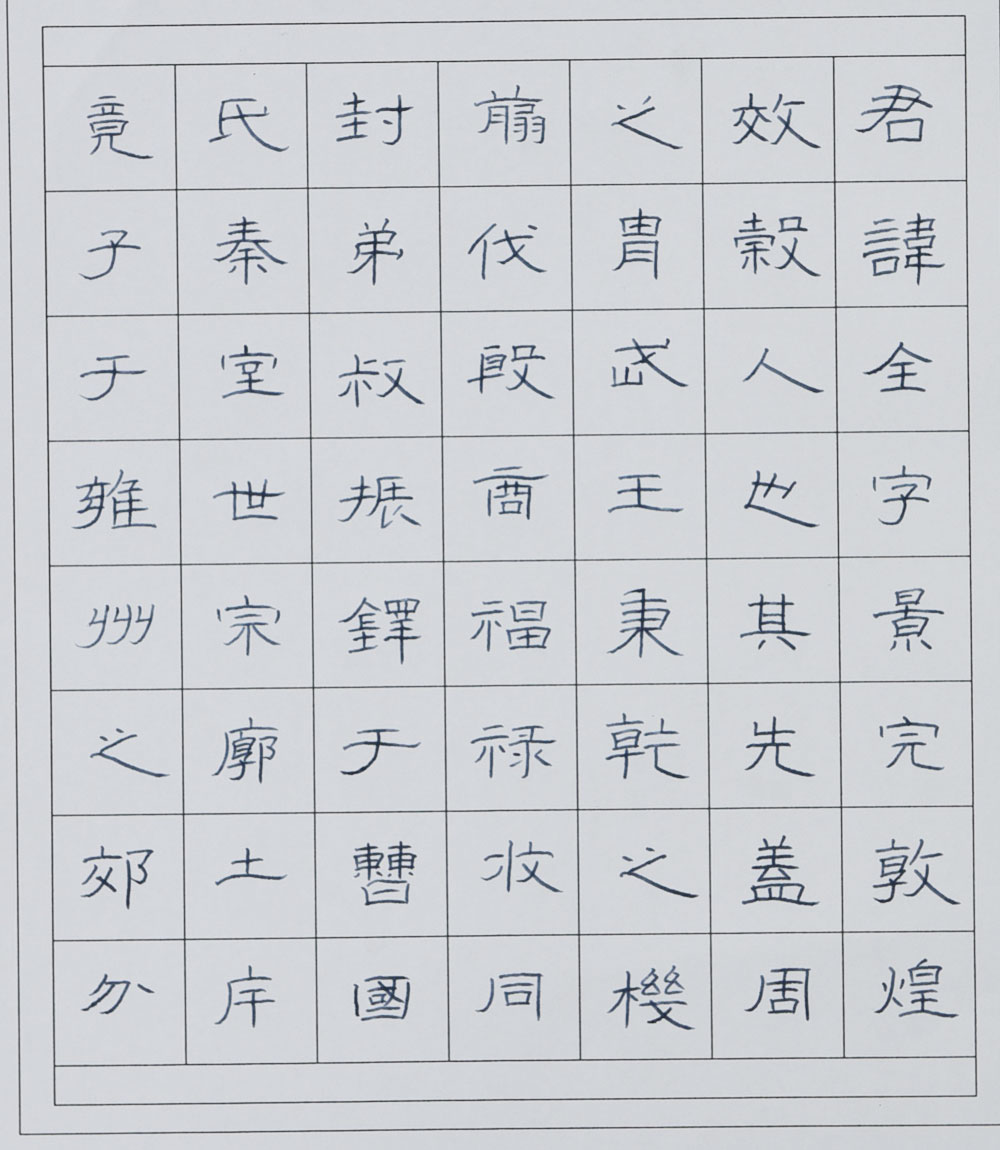 君諱全字景完敦煌
效穀人也其先盖周
之胄武王秉乾之機
翦伐殷商福禄攸同
封弟叔振鐸于曹國
氏秦室世宗廓土斥
竟子于雍州之郊分